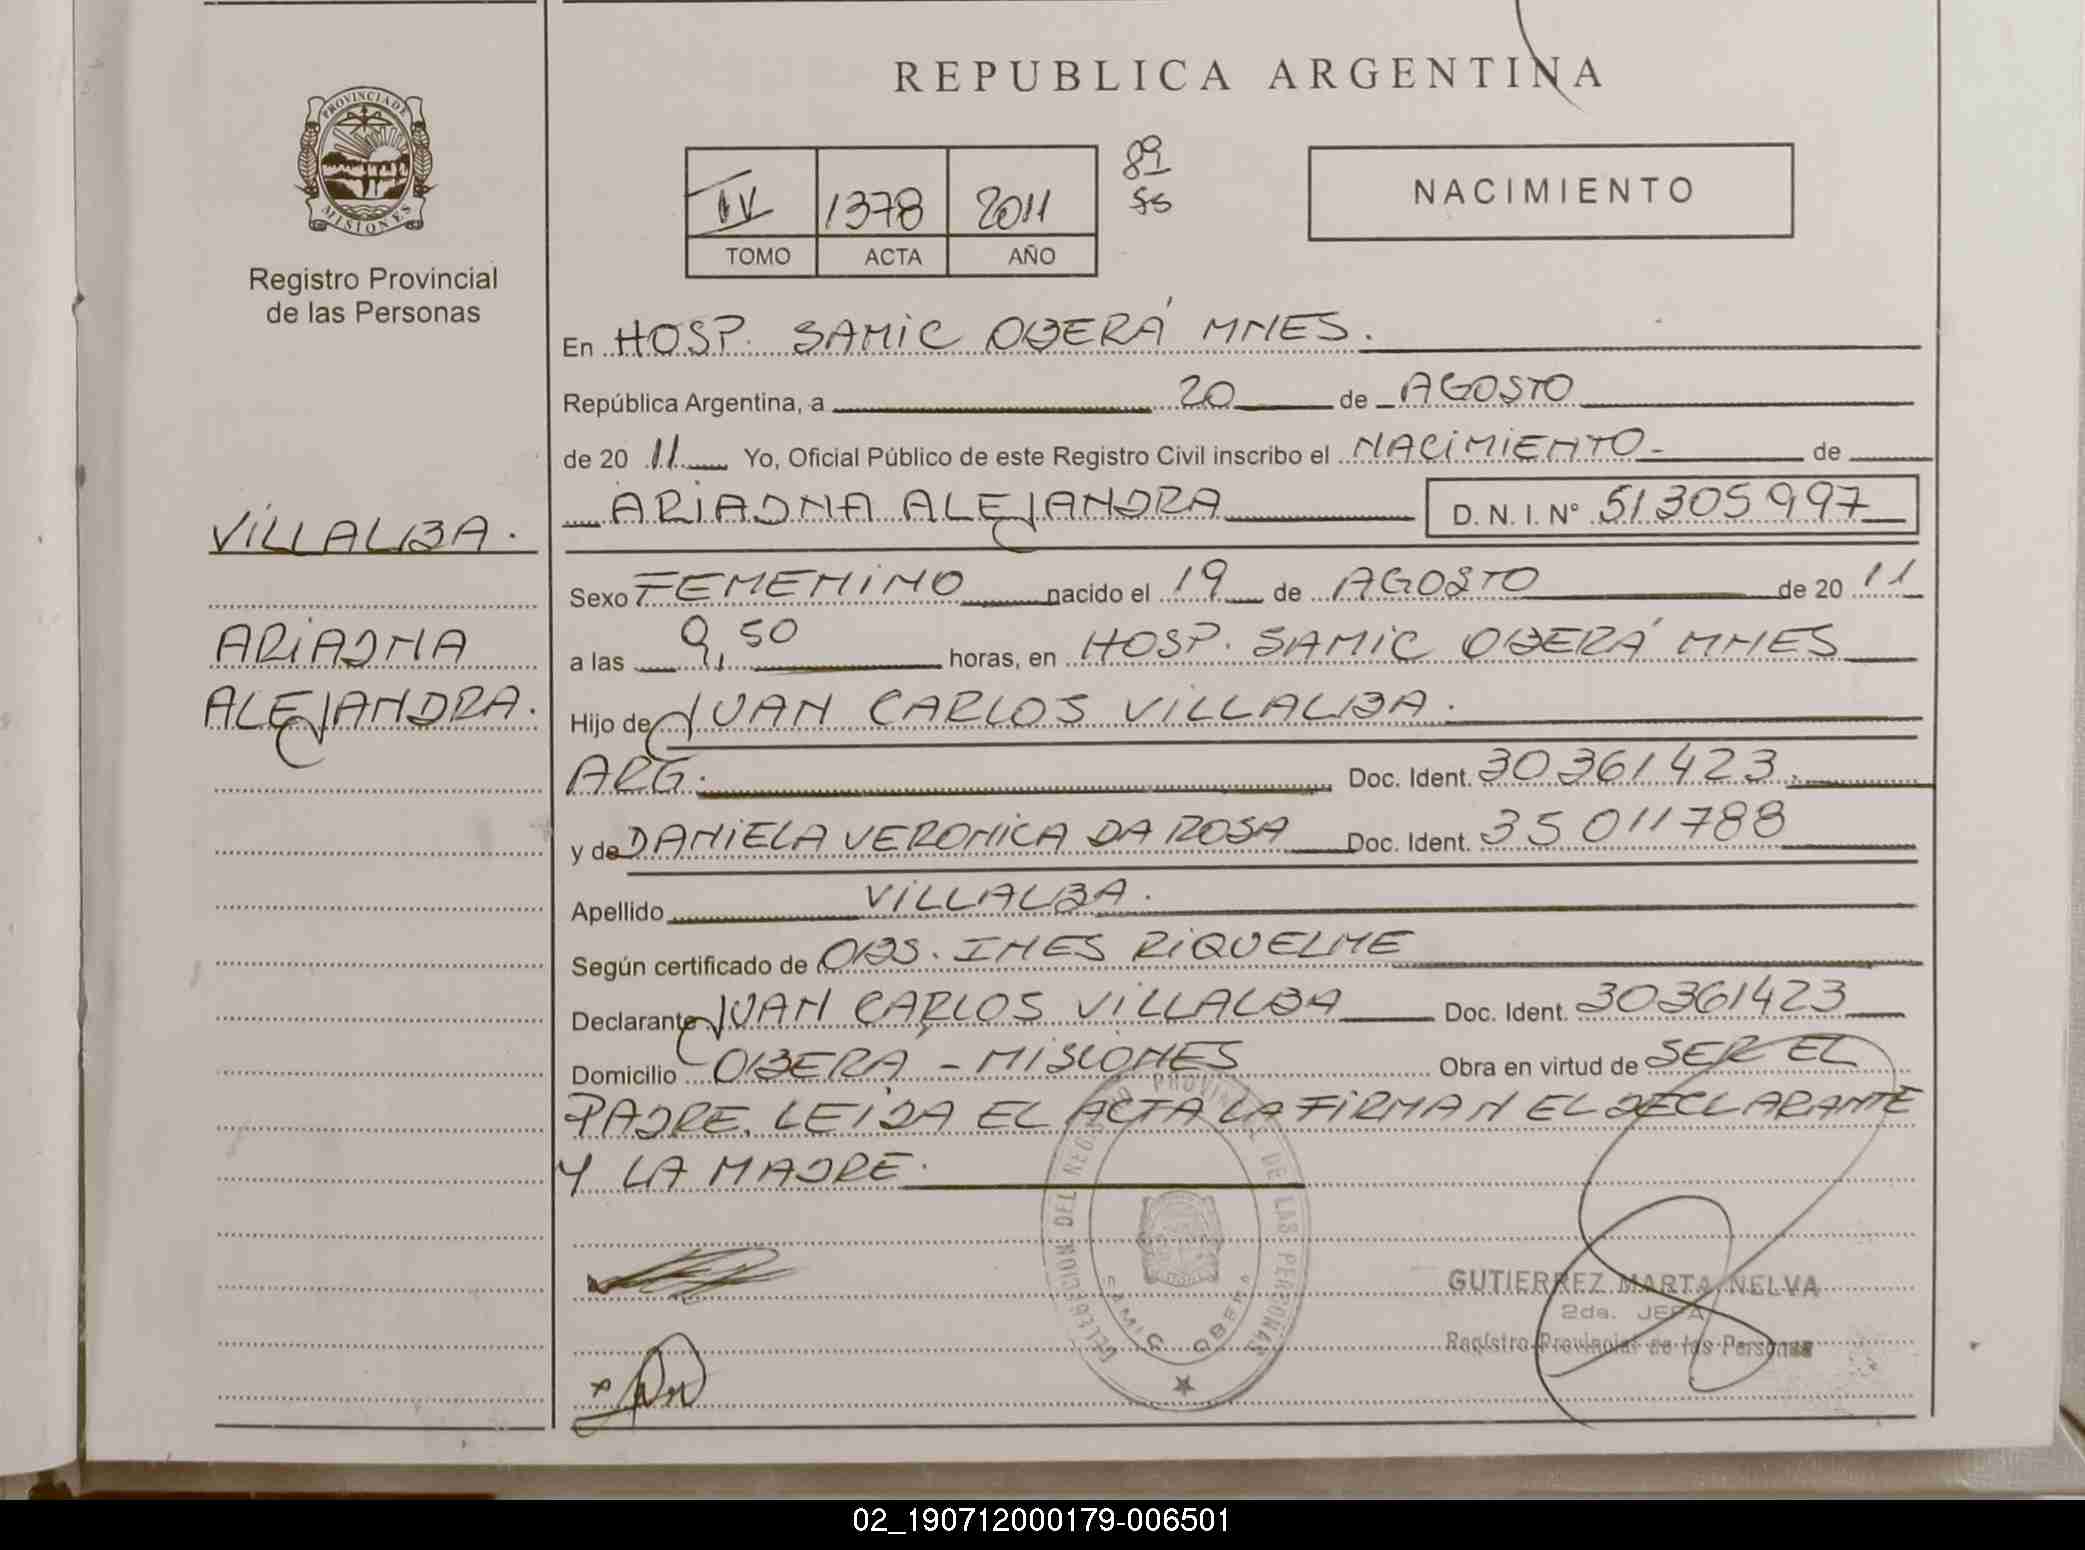 PROVINCIA DE
MISIONES
Registro Provincial
de las Personas
VILLALBA.
ARIADNA
ALEJANDRA.
REPUBLICA ARGENTINA
IV 1378 2011
TOMO ACTA AÑO
89
NACIMIENTO
En HOSP. SAMIC OBERÁ MNES.
República Argentina, a 20 de AGOSTO
de 20 11 Yo, Oficial Público de este Registro Civil inscribo el NACIMIENTO - de
ARIADNA ALEJANDRA D. N. I. N° 51305997
Sexo FEMENINO nacido el 19 de AGOSTO de 20 11
a las 9,50 horas, en HOSP. SAMIC OBERÁ MNES
Hijo de JUAN CARLOS VILLALBA.
ARG. Doc. Ident. 30361423.
y de DANIELA VERONICA DA ROSA Doc. Ident. 35011788
Apellido VILLALBA.
Según certificado de OBS. INES RIQUELME
Declarante JUAN CARLOS VILLALBA Doc. Ident. 30361423
Domicilio OBERA - MISIONES Obra en virtud de SER EL
PADRE. LEIDA EL ACTA LA FIRMAN EL DECLARANTE
Y LA MADRE.
DELEGACION DEL REGISTRO PROVINCIAL DE LAS PERSONAS
SAMIC OBERA
GUTIERREZ MARTA NELVA
2da. JEFA
Registro Provincial de las Personas
02_190712000179-006501